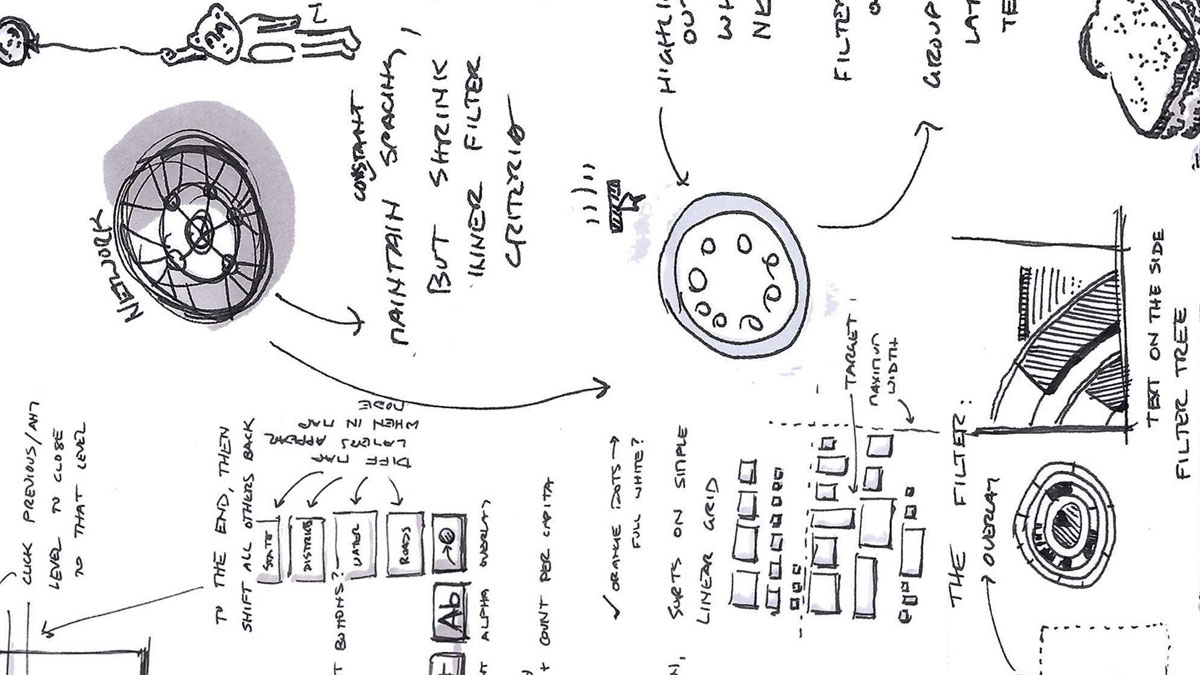 NETWORK
CONSTANT
MAINTAIN SPACING,
BUT SHRINK
INNER FILTER
CRITERIA
OUT
FILTER
GROUP
CLICK PREVIOUS/ANY
LEVEL TO CLOSE
TO THAT LEVEL
TO THE END, THEN
SHIFT ALL OTHERS BACK
DIFF MAP
LAYERS APPEAR
WHEN IN MAP
MODE
STATE
DISTRICTS
WATER
ROADS
BUTTONS?
Ab
ALPHA OVERLAY
+ COUNT PER CAPITA
✓ ORANGE DOTS →
FULL WHITE?
SORTS ON SIMPLE
LINEAR GRID
TARGET
MAXIMUM
WIDTH
THE FILTER:
→ OVERLAY
TEXT ON THE SIDE
FILTER TREE